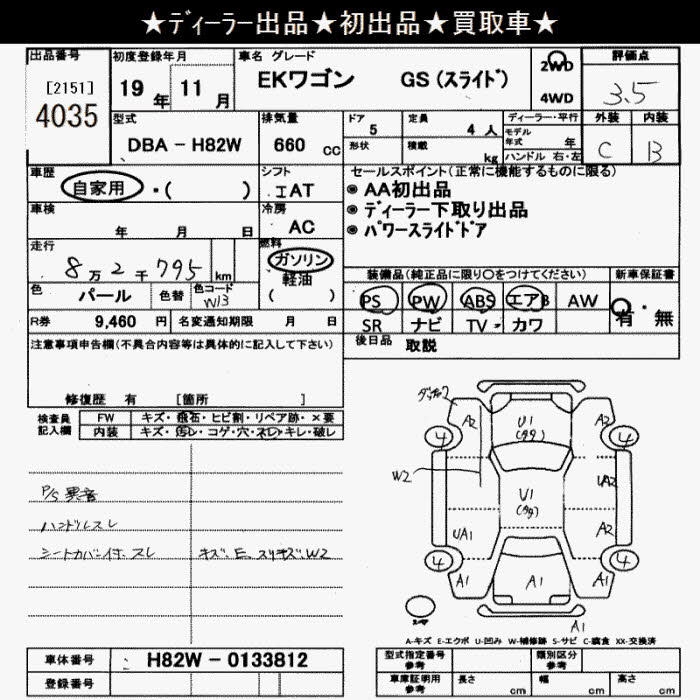 ★ディーラー出品★初出品★買取車★
出品番号 初度登録年月 車名 グレード 2WD 評価点
[2151] 19年 11月 EKワゴン GS (スライド) 4WD 3.5
4035
型式 排気量 ドア 定員 ディーラー・平行 外装 内装
DBA - H82W 660 cc 5 4 人 モデル年式 年 C B
形状 積載 kg ハンドル 右・左
車歴 シフト セールスポイント(正常に機能するものに限る)
自家用 ・( ) IAT ◉ AA初出品
車検 冷房 ◉ ディーラー下取り出品
年 月 日 AC ◉ パワースライドドア
走行 燃料
8万2千795 km ガソリン
軽油
( )
装備品(純正品に限り○をつけてください) 新車保証書
色 パール 色替 色コード W13 PS PW ABS エアB AW 有・無
R券 9,460 円 名変通知期限 月 日 SR ナビ TV カワ
注意事項申告欄(不具合内容等は具体的に記入して下さい) 後日品 取説
修復歴 有 [箇所 ]
検査員記入欄 FW キズ・飛石・ヒビ割・リペア跡・×要
内装 キズ・汚レ・コゲ・穴・スレ・キレ・破レ
P/S 異音
ハンドルスレ
シートカバー付、スレ キズ、E、スリキズ、W2
A2 U1 A2
4 4
W2
U1 UA2
UA1 A2
4 4
A1 A1 A1
A1
A-キズ E-エクボ U-凹み W-補修跡 S-サビ C-腐食 XX-交換済
車体番号 H82W - 0133812 型式指定番号 参考 類別区分 参考
登録番号 車庫証明用 参考 長さ cm 幅 cm 高さ cm